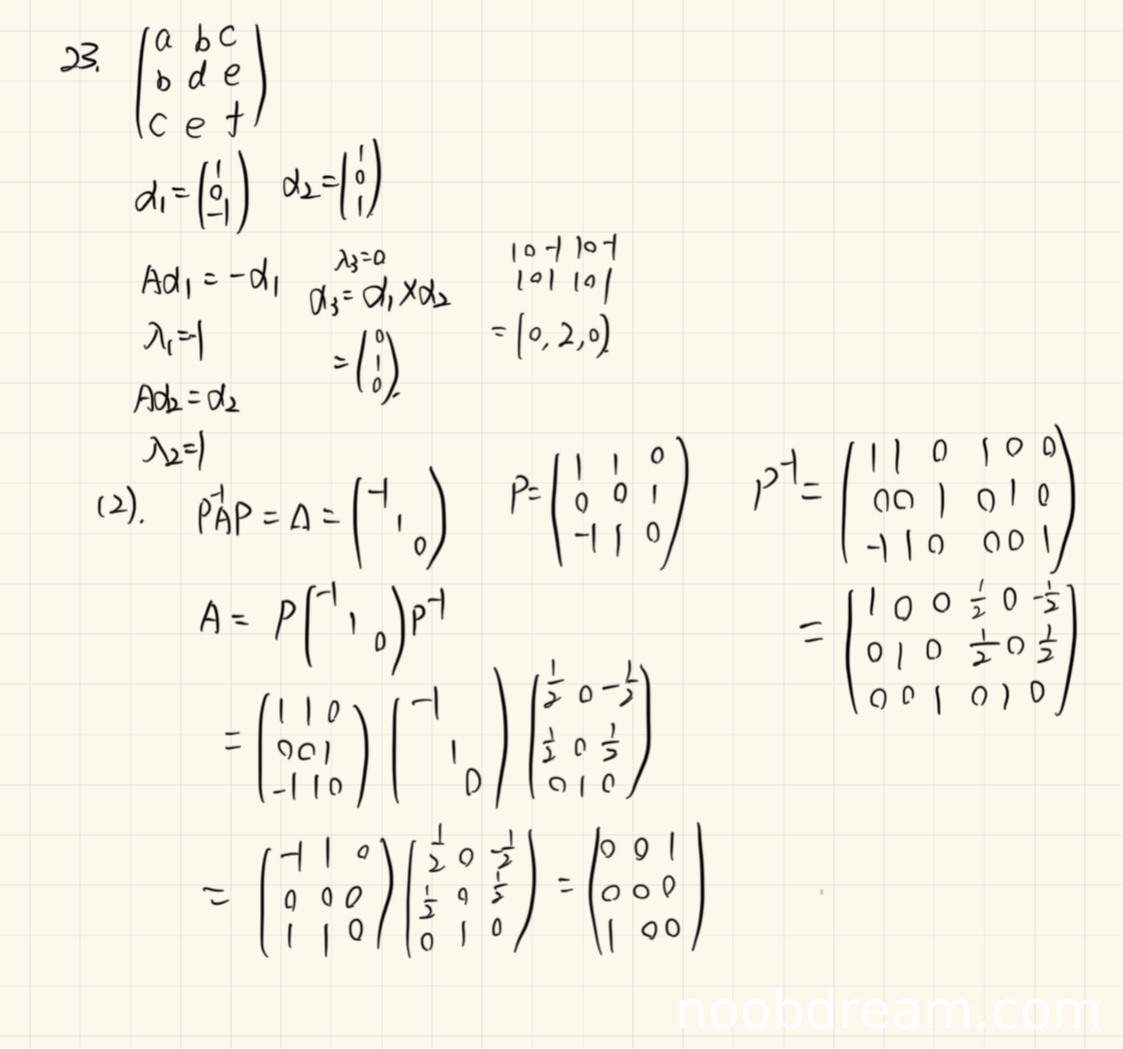 23. (a b c
b d e
c e f)
α1 = (1 0 -1) α2 = (1 0 1)
Aα1 = -α1
λ1 = -1
Aα2 = α2
λ2 = 1
λ3 = 0
α3 = α1 × α2
= (0 1 0).
1 0 -1 1 0 -1
1 0 1 1 0 1
= (0, 2, 0)
(2). P⁻¹AP = Λ = (-1 1 0)
P = (1 1 0
0 0 1
-1 1 0)
P⁻¹ = (1 1 0 1 0 0
0 0 1 0 1 0
-1 1 0 0 0 1)
= (1 0 0 1/2 0 -1/2
0 1 0 1/2 0 1/2
0 0 1 0 1 0)
A = P(-1 1 0)P⁻¹
= (1 1 0
0 0 1
-1 1 0) (-1 1 0) (1/2 0 -1/2
1/2 0 1/2
0 1 0)
= (-1 1 0
0 0 0
1 1 0) (1/2 0 -1/2
1/2 0 1/2
0 1 0) = (0 0 1
0 0 0
1 0 0)
noobdream.com